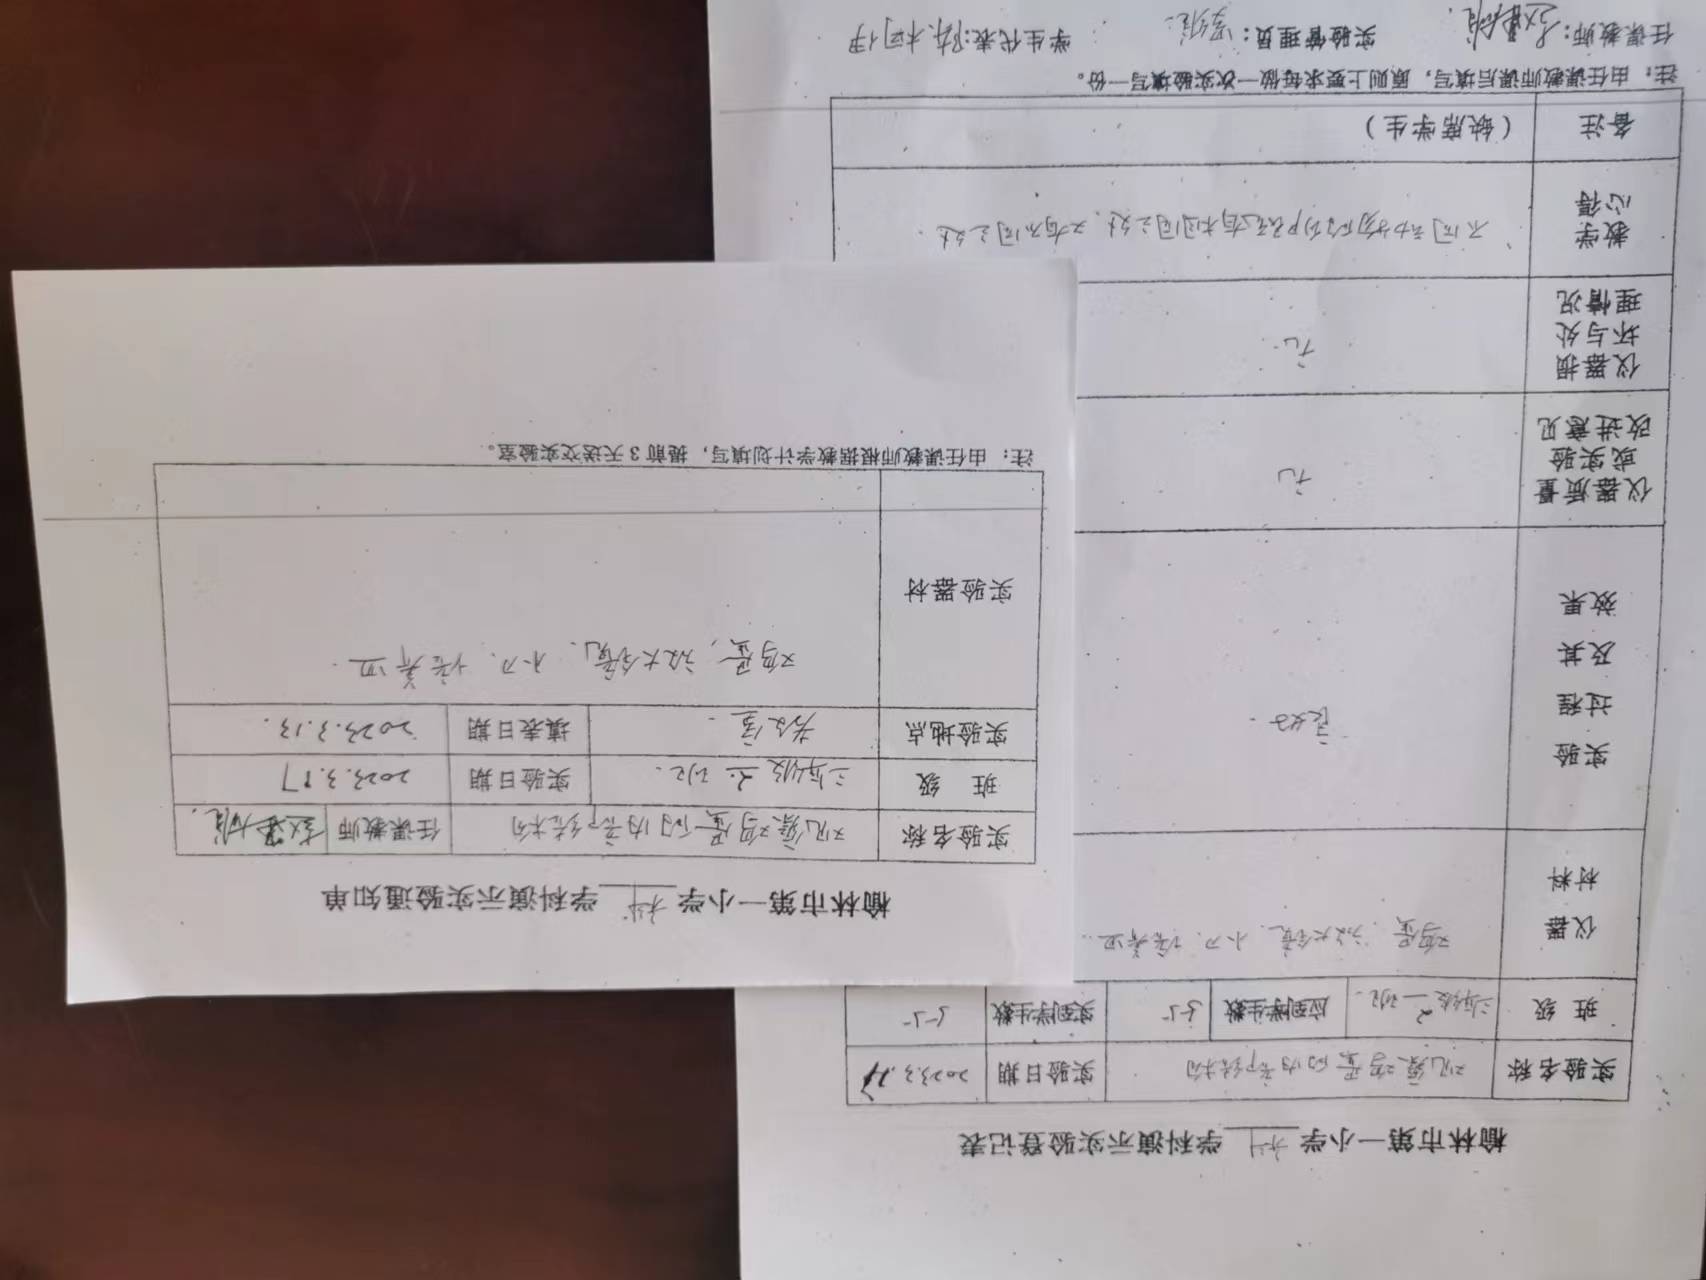 榆林市第一小学 科 学科演示实验通知单
实验名称 观察鸡蛋的内部结构 任课教师
班 级 三年级 2. 班. 实验日期 2023.3.17
实验地点 填表日期 2023.3.13.
实验器材 鸡蛋, 放大镜、小刀、培养皿.
注：由任课教师根据教学计划填写，提前3天送交实验室。
榆林市第一小学 科 学科演示实验登记表
实验名称 观察鸡蛋的内部结构 实验日期 2023.3.
班 级 三年级 班. 应到学生数 55 实到学生数 55
仪器材料 鸡蛋、放大镜、小刀、培养皿.
实验过程及其效果 良好.
仪器质量或实验改进意见 无
仪器损坏与处理情况 无.
教学心得 不同动物的卵有相同之处、又有不同之处.
备注 （缺席学生）
注：由任课教师课后填写，原则上要求每做一次实验填写一份。
任课教师： 实验管理员： 学生代表：陈柯伊